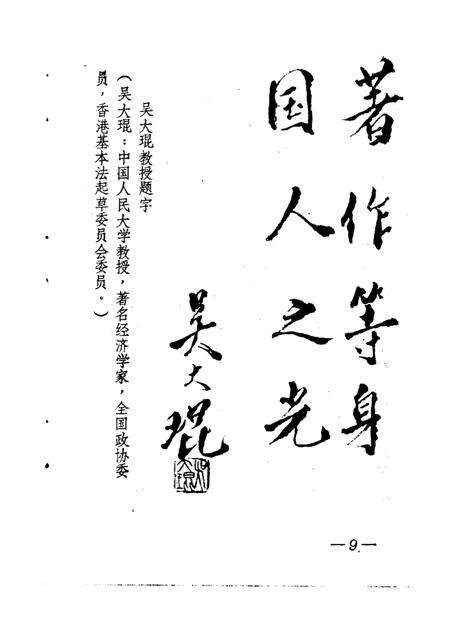 著作等身
国人之光
吴大琨
吴大琨教授题字
(吴大琨:中国人民大学教授,著名经济学家,全国政协委
员,香港基本法起草委员会委员。)
—9—